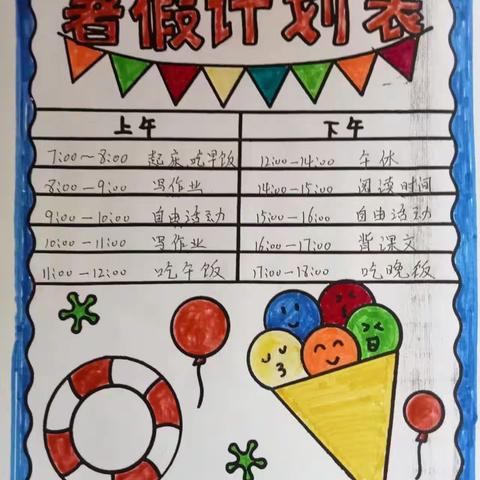 暑假计划表
上午 下午
7:00~8:00 起床吃早饭 12:00-14:00 午休
8:00-9:00 写作业 14:00-15:00 阅读时间
9:00-10:00 自由活动 15:00-16:00 自由活动
10:00-11:00 写作业 16:00-17:00 背课文
11:00-12:00 吃午饭 17:00-18:00 吃晚饭